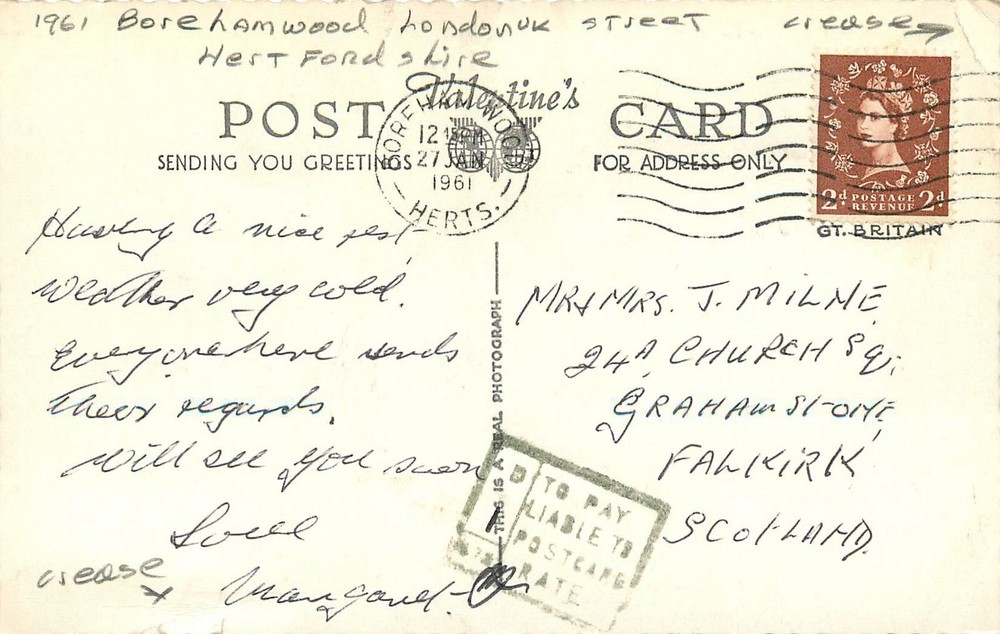 1961 Borehamwood London UK street crease
Hertfordshire
Valentine's
POST CARD
SENDING YOU GREETINGS FOR ADDRESS ONLY
BOREHAM WOOD
12 15 PM
27 JAN
1961
HERTS.
2d POSTAGE REVENUE 2d
GT. BRITAIN
Having a nice rest
weather very cold.
Everyone here sends
their regards.
will see you soon
Love
Margaret
crease
THIS IS A REAL PHOTOGRAPH
MR & MRS. J. MILNE
24A CHURCH Sq.
GRAHAMSTONE,
FALKIRK
SCOTLAND.
D
1
TO PAY
LIABLE TO
POSTCARD
RATE